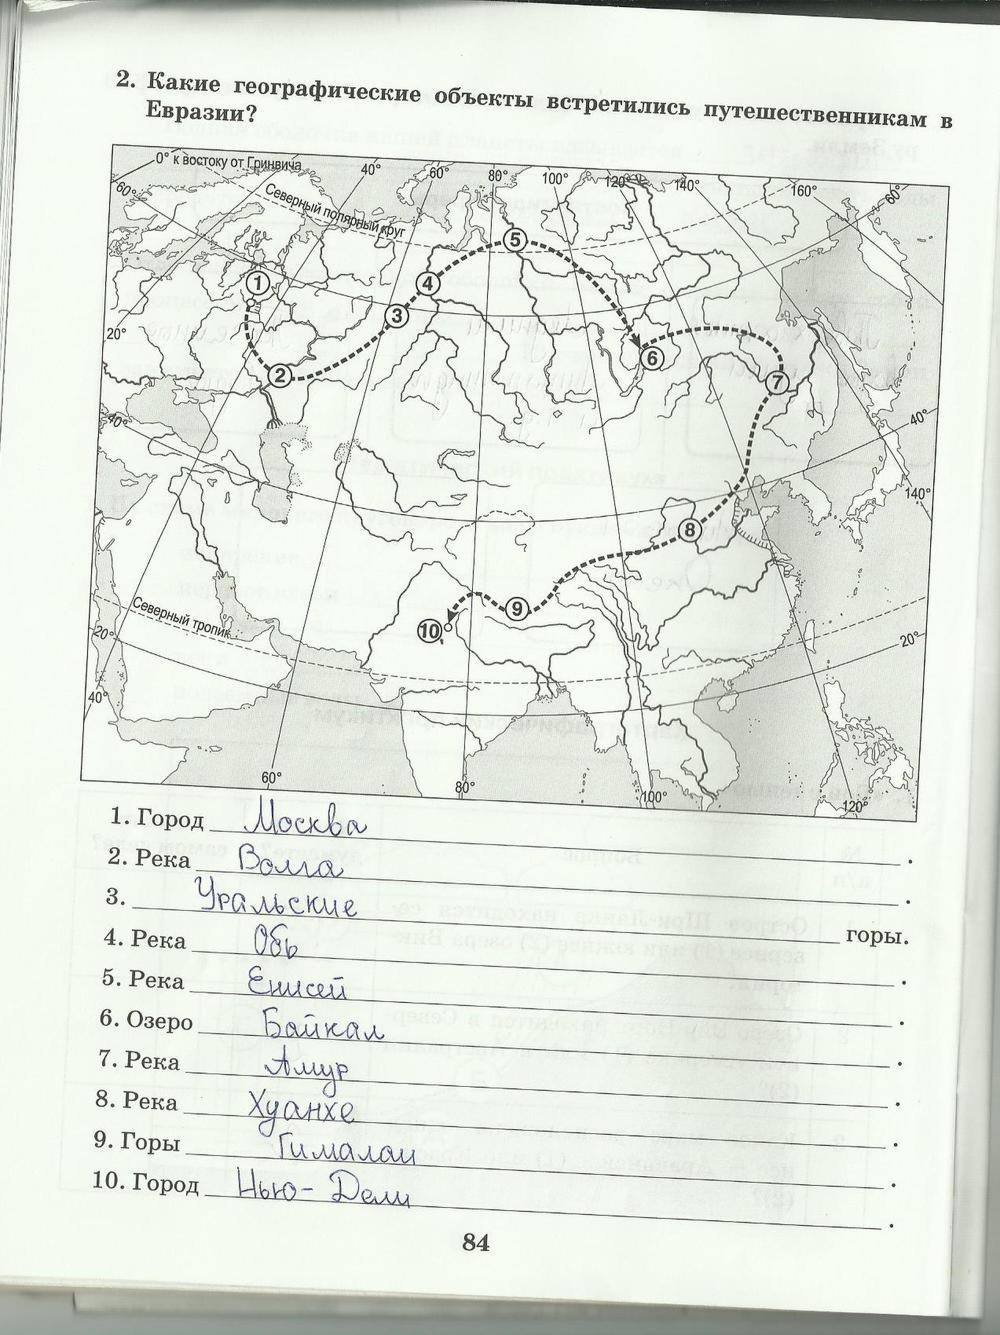 2. Какие географические объекты встретились путешественникам в
Евразии?
0° к востоку от Гринвича
40°
60°
80°
100°
120°
140°
160°
60°
60°
Северный полярный круг
5
1
4
3
20°
6
2
7
40°
40°
140°
8
9
Северный тропик
10
20°
20°
40°
60°
80°
100°
120°
1. Город Москва.
2. Река Волга.
3. Уральские горы.
4. Река Обь.
5. Река Енисей.
6. Озеро Байкал.
7. Река Амур.
8. Река Хуанхе.
9. Горы Гималаи.
10. Город Нью-Дели.
84